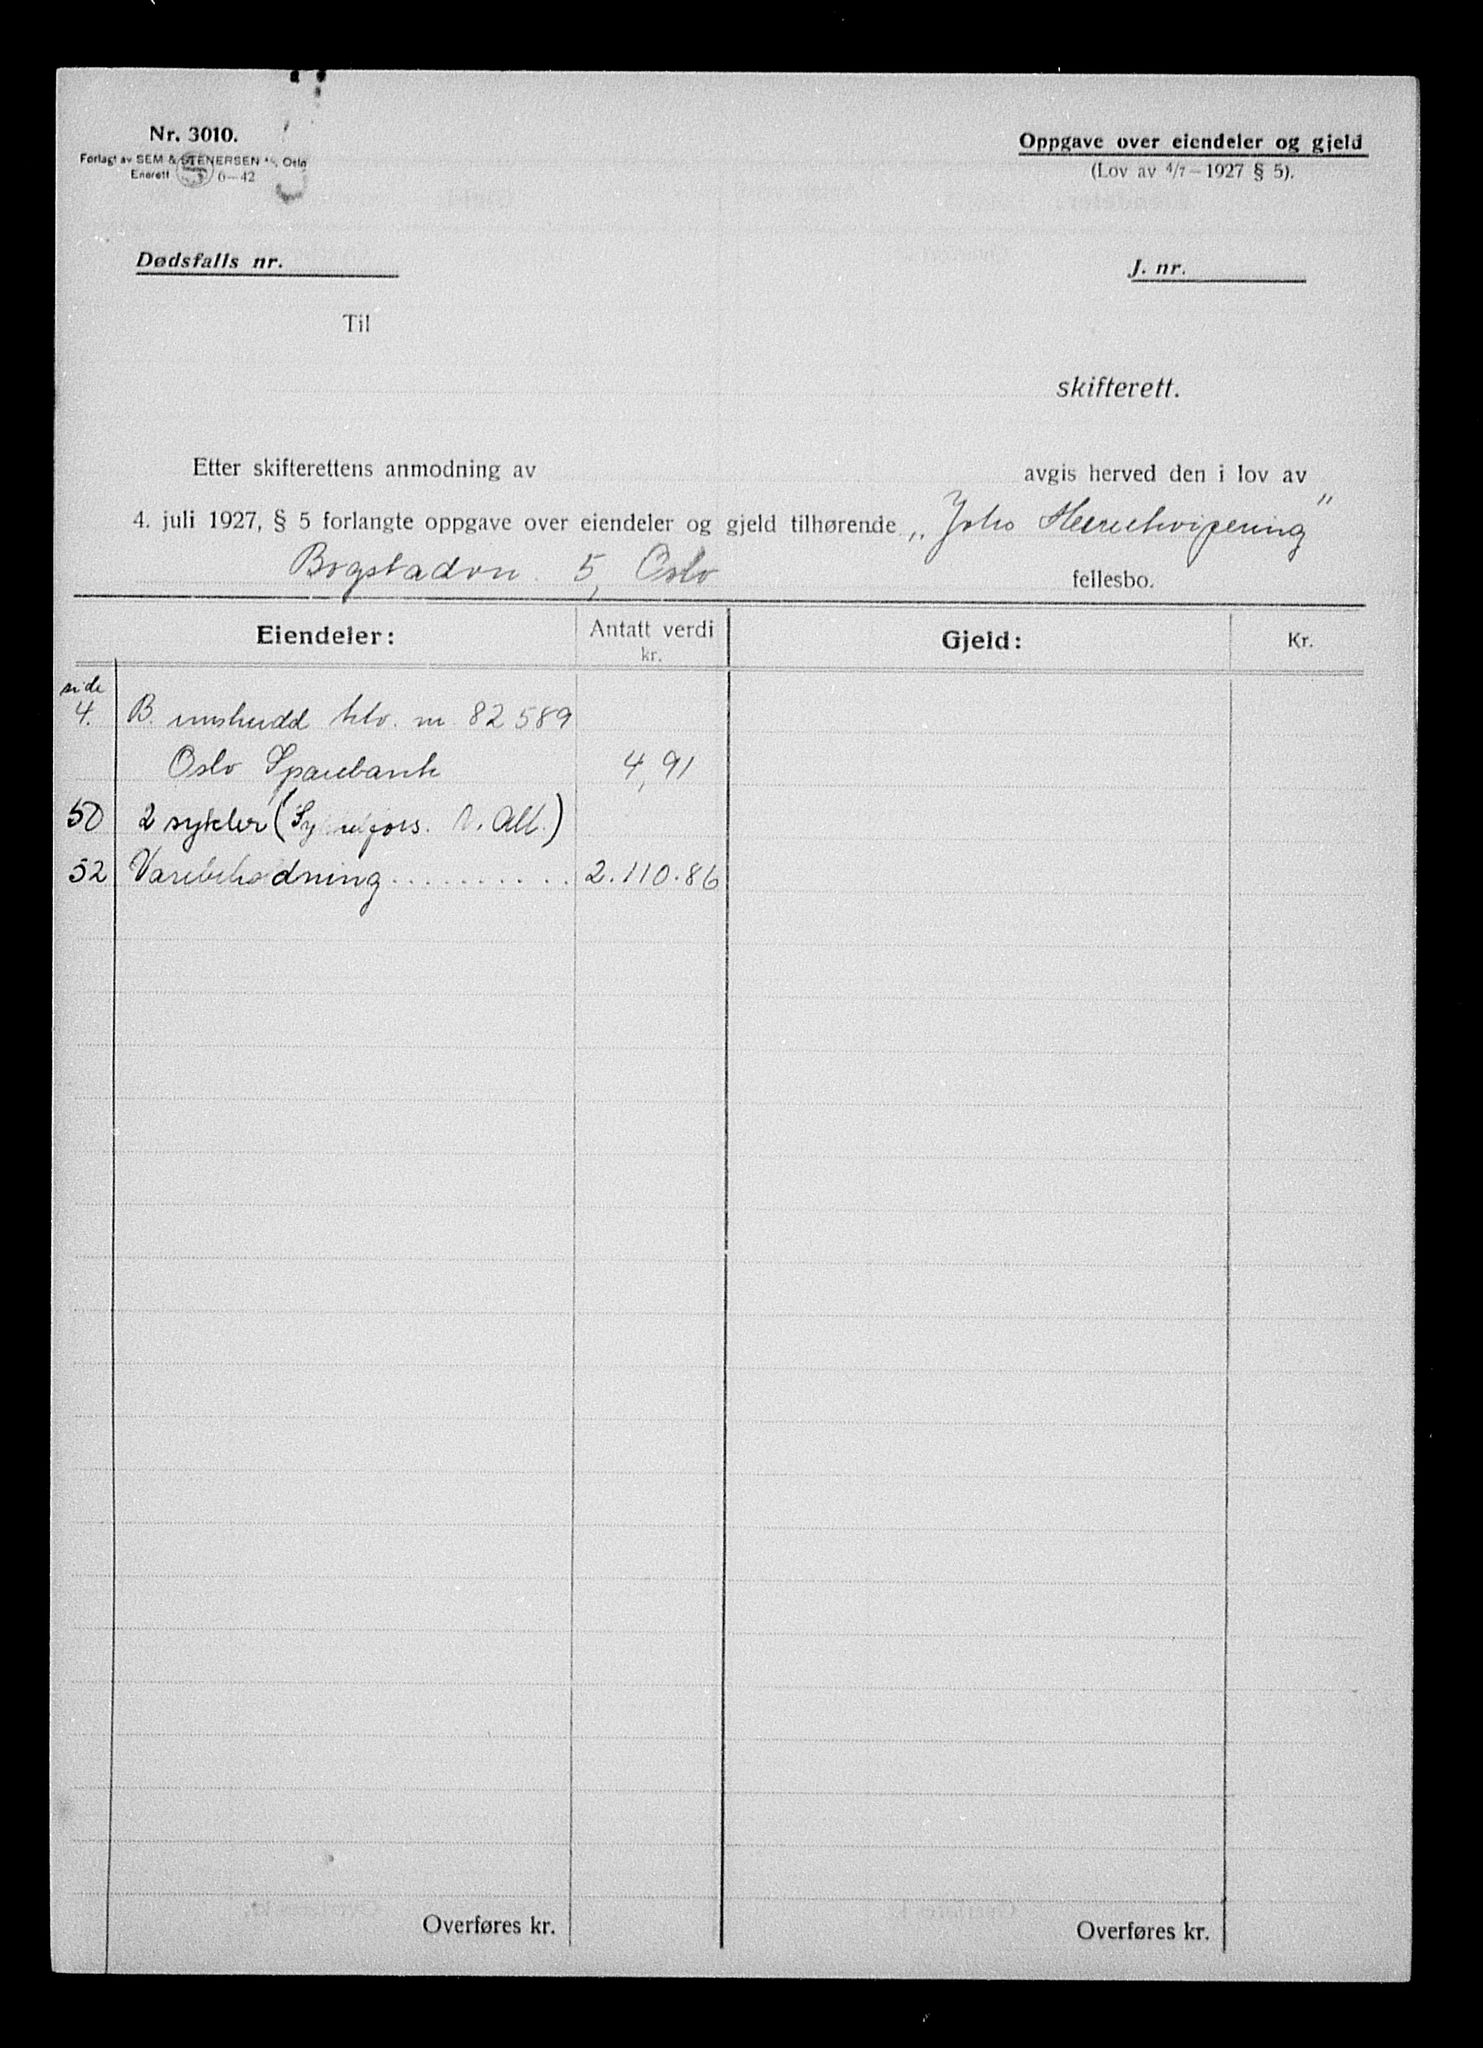 Nr. 3010.
Forlagt av SEM & STENERSEN A/S, Oslo
Enerett 6—42
Oppgave over eiendeler og gjeld
(Lov av 4/7—1927 § 5).
Dødsfalls nr.
J. nr.
Til
skifterett.
Etter skifterettens anmodning av avgis herved den i lov av
4. juli 1927, § 5 forlangte oppgave over eiendeler og gjeld tilhørende „Joko Herreekvipering"
Bogstadvn. 5, Oslo fellesbo.
Eiendeler: Antatt verdi kr. Gjeld: Kr.
side
4. B. innskudd klv. nr 82589
Oslo Sparebank 4,91
50 2 sykler ( fors. V. All.)
52 Varebeholdning .......... 2.110.86
Overføres kr. Overføres kr.